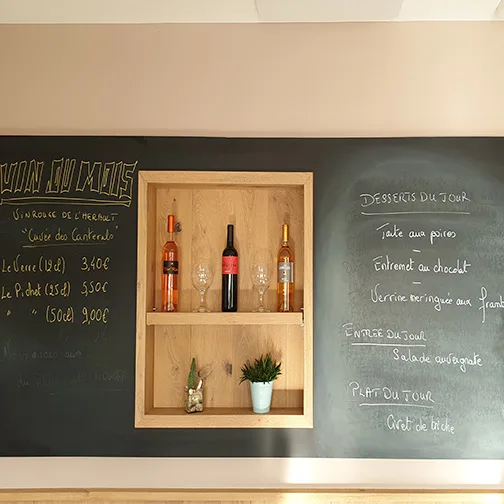 VIN DU MOIS
VIN ROUGE DE L'HERAULT
"Cuvée des Canterels"
Le Verre (12cl) 3,40€
Le Pichet (25cl) 5,50€
" " (50cl) 9,00€
DESSERTS DU JOUR
Tarte aux poires
—
Entremet au chocolat
—
Verrine meringuée aux
ENTRÉE DU JOUR
Salade auvergnate
PLAT DU JOUR
Civet de biche